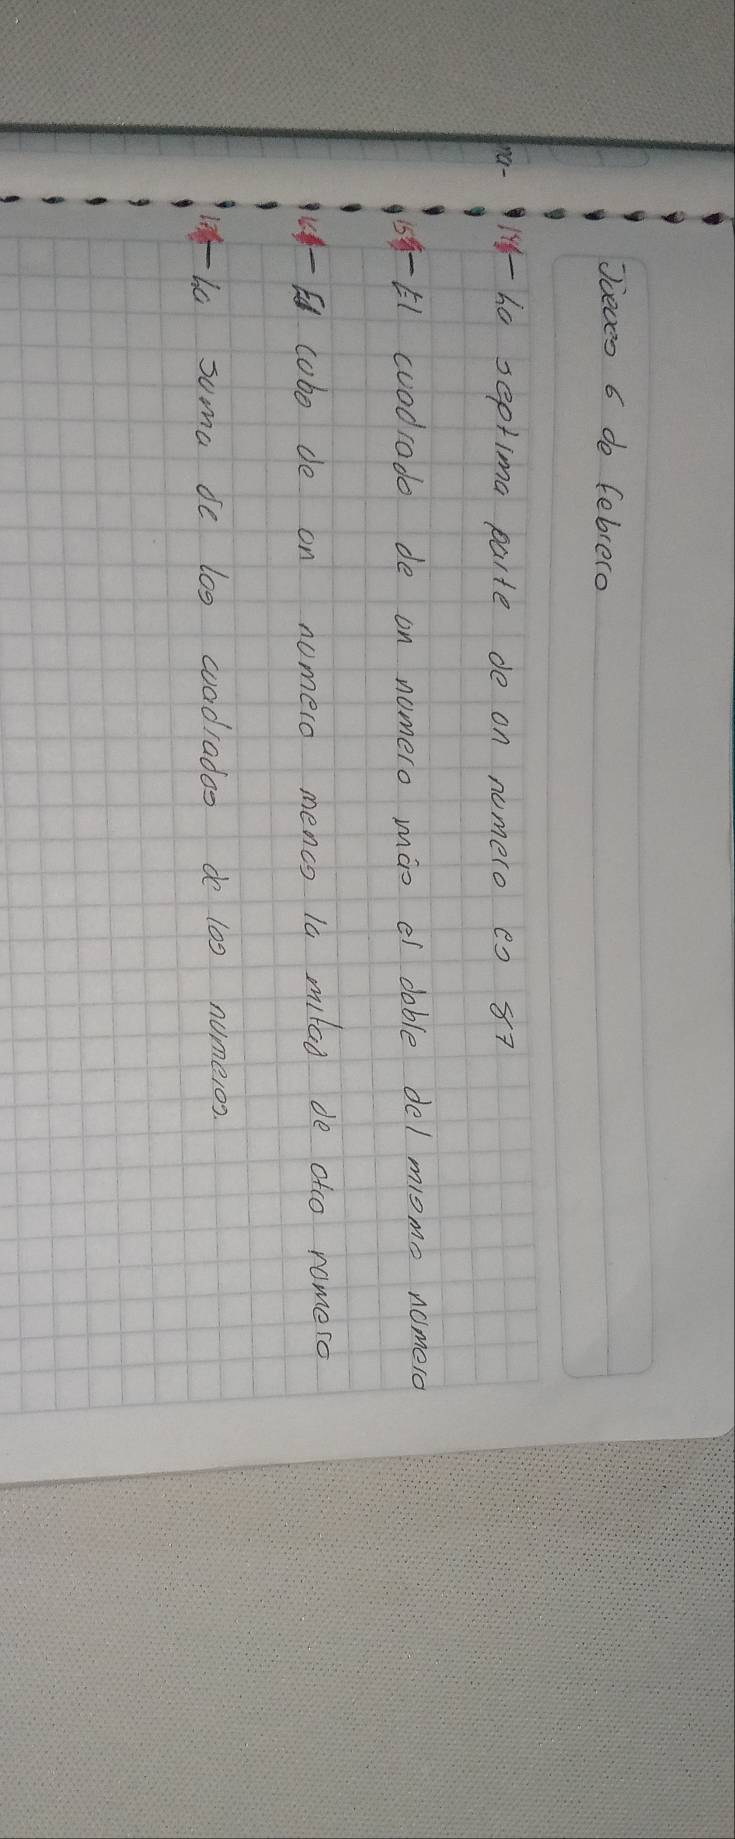 Jueves 6 de febrero
na-
14- La septima parte de un numero es 87
15- El cuadrado de un numero más el doble del mismo numero
16- El cubo de un numero menos la mitad de otro numero
17- La suma de los cuadrados de los numeros.